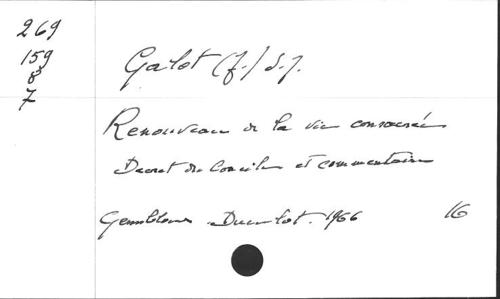 269
159
8
7
Galot (J.) S.J.
Renouveau de la vie consacrée
Décret du Concile et commentaire
Gembloux Duculot. 1966 16